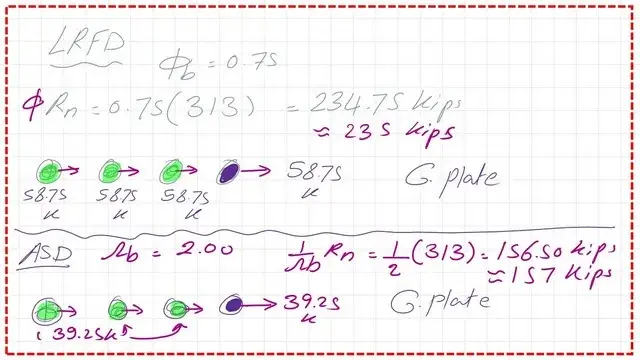 LRFD
Φb = 0.75
ΦRn = 0.75(313) = 234.75 kips
≈ 235 kips
58.75 K 58.75 K 58.75 K 58.75 K G. plate
ASD Ωb = 2.00 1/Ωb Rn = 1/2 (313) = 156.50 kips
≈ 157 kips
39.25 K G. plate
39.25K